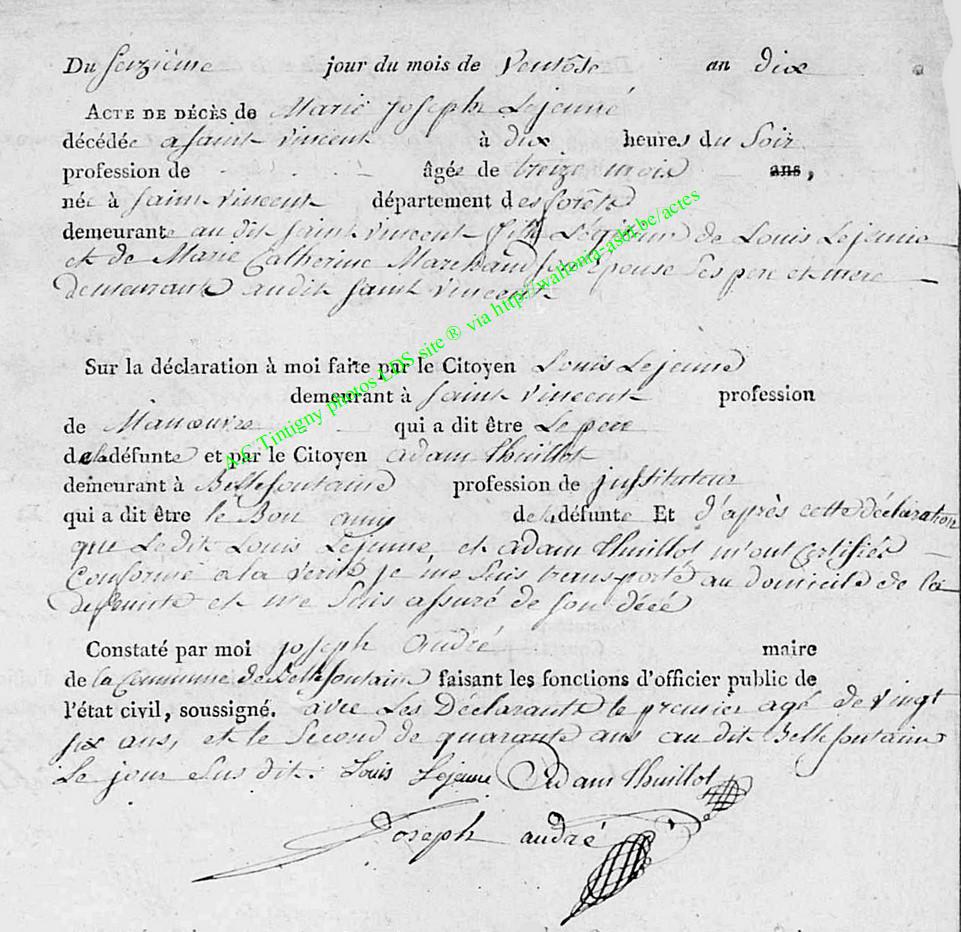 Du seizième jour du mois de Ventôse an dix
ACTE DE DÉCÈS de Marie Joseph Lejeune
décédée a Saint Vincent à dix heures du Soir
profession de âgée de treize mois ans,
née à Saint Vincent département des forêts
demeurante au dit Saint Vincent fille Légitime de Louis Lejeune
et de Marie Catherine Marchand son Epouse Ses pere et mere
demeurants audit Saint Vincent
Sur la déclaration à moi faite par le Citoyen Louis Lejeune
demeurant à Saint Vincent profession
de Manœuvre qui a dit être Le pere
de la défunte et par le Citoyen Adam Thuillot
demeurant à Bellefontaine profession de instituteur
qui a dit être le Bon amy de la défunte Et d'après cette déclaration
que Ledit Louis Lejeune, et Adam Thuillot m'ont Certifiés
Conforme a la Verité je me Suis transporté au domicile de la
defunte et me Suis assuré de Son décé
Constaté par moi Joseph André maire
de la Commune de Bellefontaine faisant les fonctions d'officier public de
l'état civil, soussigné. avec Les Déclarants le premier agé de Vingt
six ans, et le Second de quarante ans au dit Bellefontaine
Le jour Sus dit. Louis Lejeune Adam Thuillot
Joseph andré
A.C Tintigny photos LDS site ® via http://wallonia-asbl.be/actes